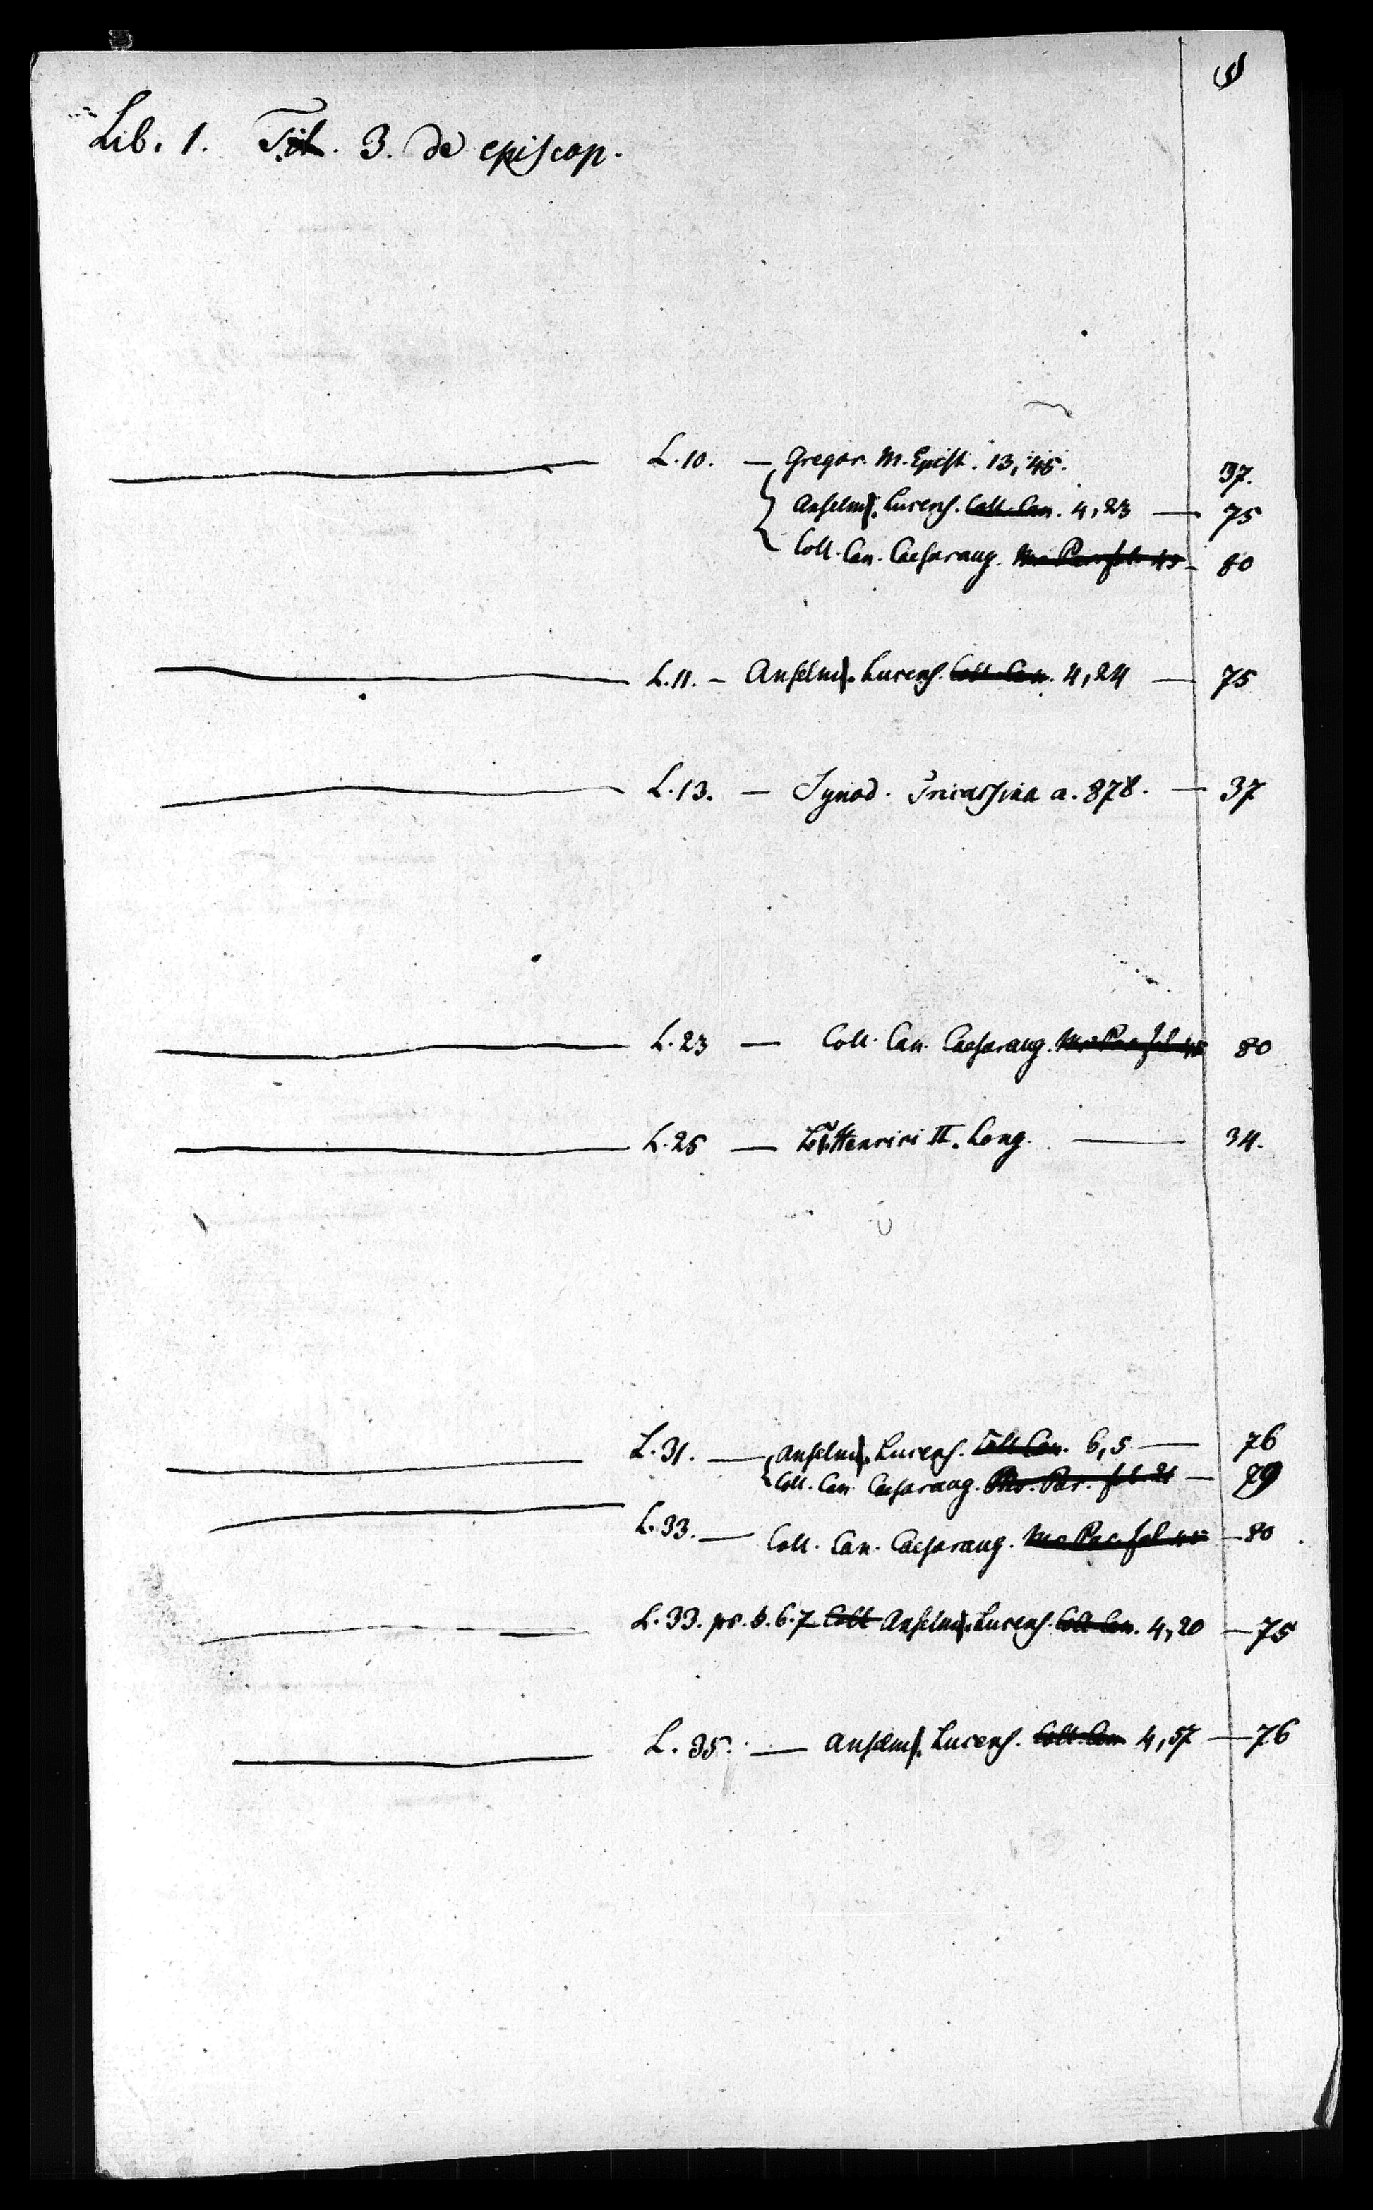 Lib. 1. Tit. 3. de episcop.
L. 10. — Gregor. M. Epist. 13, 45. 37.
Anselm. Lucens. Coll. Can. 4, 23 — 75
Coll. Can. Caesaraug. Ms. Par. fol. 80
L. 11. — Anselm. Lucens. Coll. Can. 4, 24 — 75
L. 13. — Synod. Tricassina a. 878. — 37
L. 23 — Coll. Can. Caesaraug. Ms. Par. fol. 80
L. 25 — Henrici II. Long. — 34.
L. 31. — Anselm. Lucens. Coll. Can. 6, 5 — 76
Coll. Can. Caesaraug. Ms. Par. fol. 21 — 79
L. 33. — Coll. Can. Caesaraug. Ms. Par. fol. — 80
L. 33. pr. §. 6. 7 Coll Anselm. Lucens. Coll. Can. 4, 20 — 75
L. 35. — Anselm. Lucens. Coll. Can. 4, 57 — 76